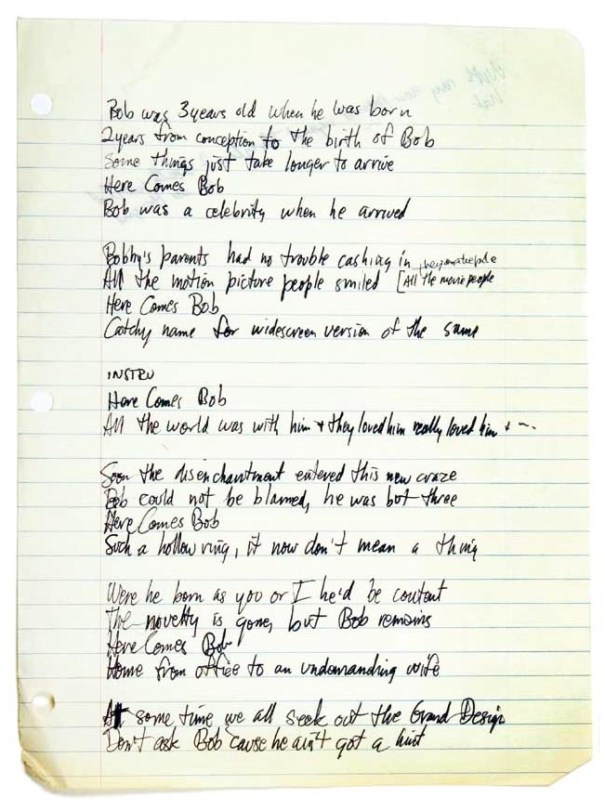 Bob was 3 years old when he was born
2 years from conception to the birth of Bob
Some things just take longer to arrive
Here Comes Bob
Bob was a celebrity when he arrived
Bobby's parents had no trouble cashing in
All the motion picture people smiled [All the movie people
Here Comes Bob
Catchy name for widescreen version of the same
INSTRU
Here Comes Bob
All the world was with him + they loved him really loved him + ~
Soon the disenchantment entered this new craze
Bob could not be blamed, he was but three
Here Comes Bob
Such a hollow ring, it now don't mean a thing
Were he born as you or I he'd be content
The novelty is gone, but Bob remains
Here Comes Bob
Home from office to an undemanding wife
At some time we all seek out the Grand Design
Don't ask Bob 'cause he ain't got a hint